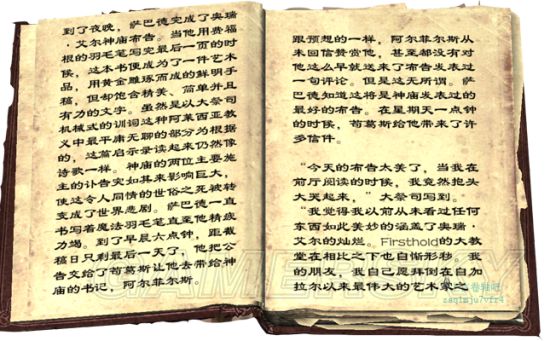 到了夜晚，萨巴德完成了奥瑞
·艾尔神庙布告。当他用费福
根的羽毛笔写完最后一页的时
候，这本书便成为了一件艺术
品，用黄金雕琢而成的鲜明手
稿，但却饱含精美、简单并且
有力的文字。虽然是以大祭司
机械式的训词这种阿莱西亚教
义中最平庸无聊的部分为根据
的，这篇启示录读起来仍然像
诗歌一样。神庙的两位主要施
主的讣告突如其来影响巨大，
使这令人同情的世俗之死被转
变成了世界悲剧。萨巴德一直
书写着魔法羽毛笔直至他精疲
力竭。到了早晨六点钟，距截
稿日只剩最后一天了，他把公
告交给了苟葛斯让他去带给神
庙的书记，阿尔菲尔斯。
跟预想的一样，阿尔菲尔斯从
未回信赞赏他，甚至都没有对
他这么早就送来了布告发表过
一句评论。但是这无所谓。萨
巴德知道这将是神庙发表过的
最好的布告。在星期天一点钟
的时候，苟葛斯给他带来了许
多信件。
“今天的布告太美了，当我在
前厅阅读的时候，我竟然抱头
大哭起来，”大祭司写到。
“我觉得我以前从来看过任何
东西如此美妙的涵盖了奥瑞·
艾尔的灿烂。Firsthold的大教
堂在相比之下也自惭形秽。我
的朋友，我自己愿拜倒在自加
拉尔以来最伟大的艺术家之
GAMERSKY
卷轴吧
zaq1mju7vfr4